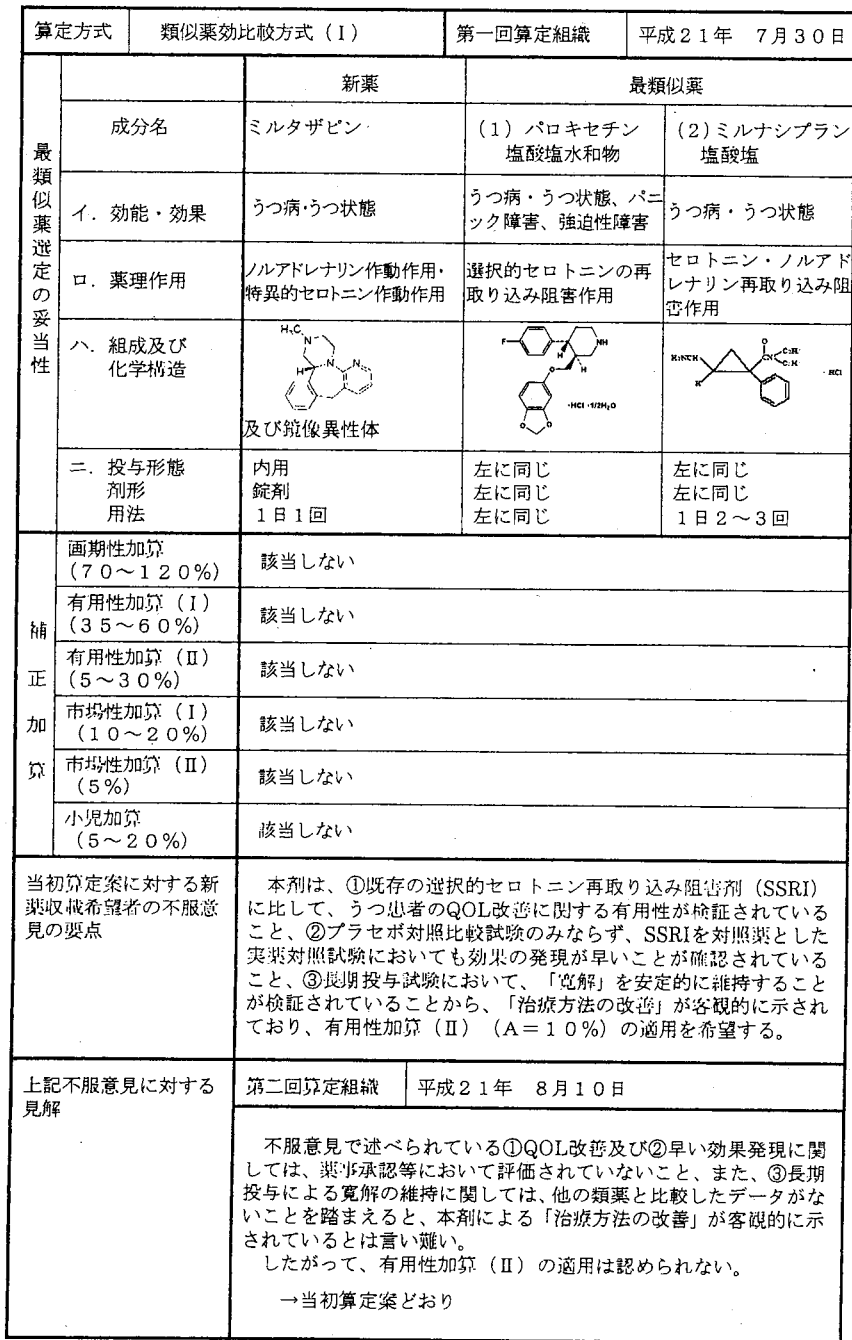 算定方式 類似薬効比較方式（Ⅰ） 第一回算定組織 平成２１年　７月３０日
最類似薬選定の妥当性
新薬 最類似薬
成分名 ミルタザピン （１）パロキセチン （２）ミルナシプラン
塩酸塩水和物 塩酸塩
イ．効能・効果 うつ病・うつ状態 うつ病・うつ状態、パニ うつ病・うつ状態
ック障害、強迫性障害
ロ．薬理作用 ノルアドレナリン作動作用・ 選択的セロトニンの再 セロトニン・ノルアド
特異的セロトニン作動作用 取り込み阻害作用 レナリン再取り込み阻
害作用
ハ．組成及び
化学構造
H₃C N N N H
F NH H H O O O ·HCl ·1/2H₂O
O ·HCl
及び鏡像異性体
ニ．投与形態 内用 左に同じ 左に同じ
剤形 錠剤 左に同じ 左に同じ
用法 １日１回 左に同じ １日２～３回
補正加算
画期性加算 該当しない
（７０～１２０％）
有用性加算（Ⅰ） 該当しない
（３５～６０％）
有用性加算（Ⅱ） 該当しない
（５～３０％）
市場性加算（Ⅰ） 該当しない
（１０～２０％）
市場性加算（Ⅱ） 該当しない
（５％）
小児加算 該当しない
（５～２０％）
当初算定案に対する新
薬収載希望者の不服意
見の要点
本剤は、①既存の選択的セロトニン再取り込み阻害剤（SSRI）
に比して、うつ患者のQOL改善に関する有用性が検証されている
こと、②プラセボ対照比較試験のみならず、SSRIを対照薬とした
実薬対照試験においても効果の発現が早いことが確認されている
こと、③長期投与試験において、「寛解」を安定的に維持すること
が検証されていることから、「治療方法の改善」が客観的に示され
ており、有用性加算（Ⅱ）（A＝１０％）の適用を希望する。
上記不服意見に対する
見解
第二回算定組織 平成２１年　８月１０日
不服意見で述べられている①QOL改善及び②早い効果発現に関
しては、薬事承認等において評価されていないこと、また、③長期
投与による寛解の維持に関しては、他の類薬と比較したデータがな
いことを踏まえると、本剤による「治療方法の改善」が客観的に示
されているとは言い難い。
したがって、有用性加算（Ⅱ）の適用は認められない。
→当初算定案どおり